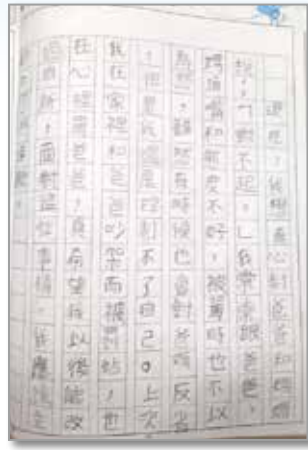 我想真心對爸爸和媽媽
說，「對不起。」我常常跟爸爸、
媽頂嘴和態度不好，被罵時也不以
為然，雖然有時候也會對反省
，但是我還是控制不了自己。上次
我在家裡和爸爸吵架而被罰站，也
在心裡罵爸爸，真希望我以後能改
過自新，面對這些事情，我應該